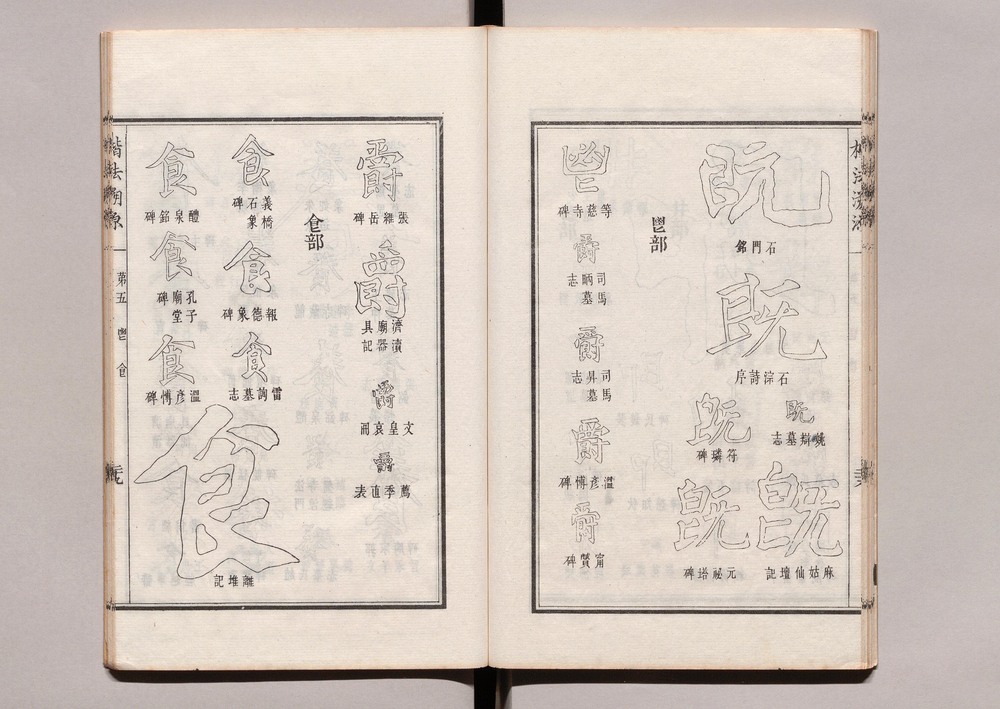 既
石門銘
既
石淙詩序
既
墓志
既
符璘碑
既
麻姑仙壇記
既
元祕塔碑
鬯部
鬯
等慈寺碑
爵
司馬昞墓志
爵
司馬昇墓志
爵
溫彥博碑
爵
甯贙碑
爵
張維岳碑
爵
濟瀆廟器具記
爵
文皇哀冊
爵
薦季直表
食部
食
義橋石象碑
食
報德象碑
食
雷詢墓志
食
離堆記
食
醴泉銘碑
食
孔子廟堂碑
食
溫彥博碑
楷法溯源
第五
鬯
食